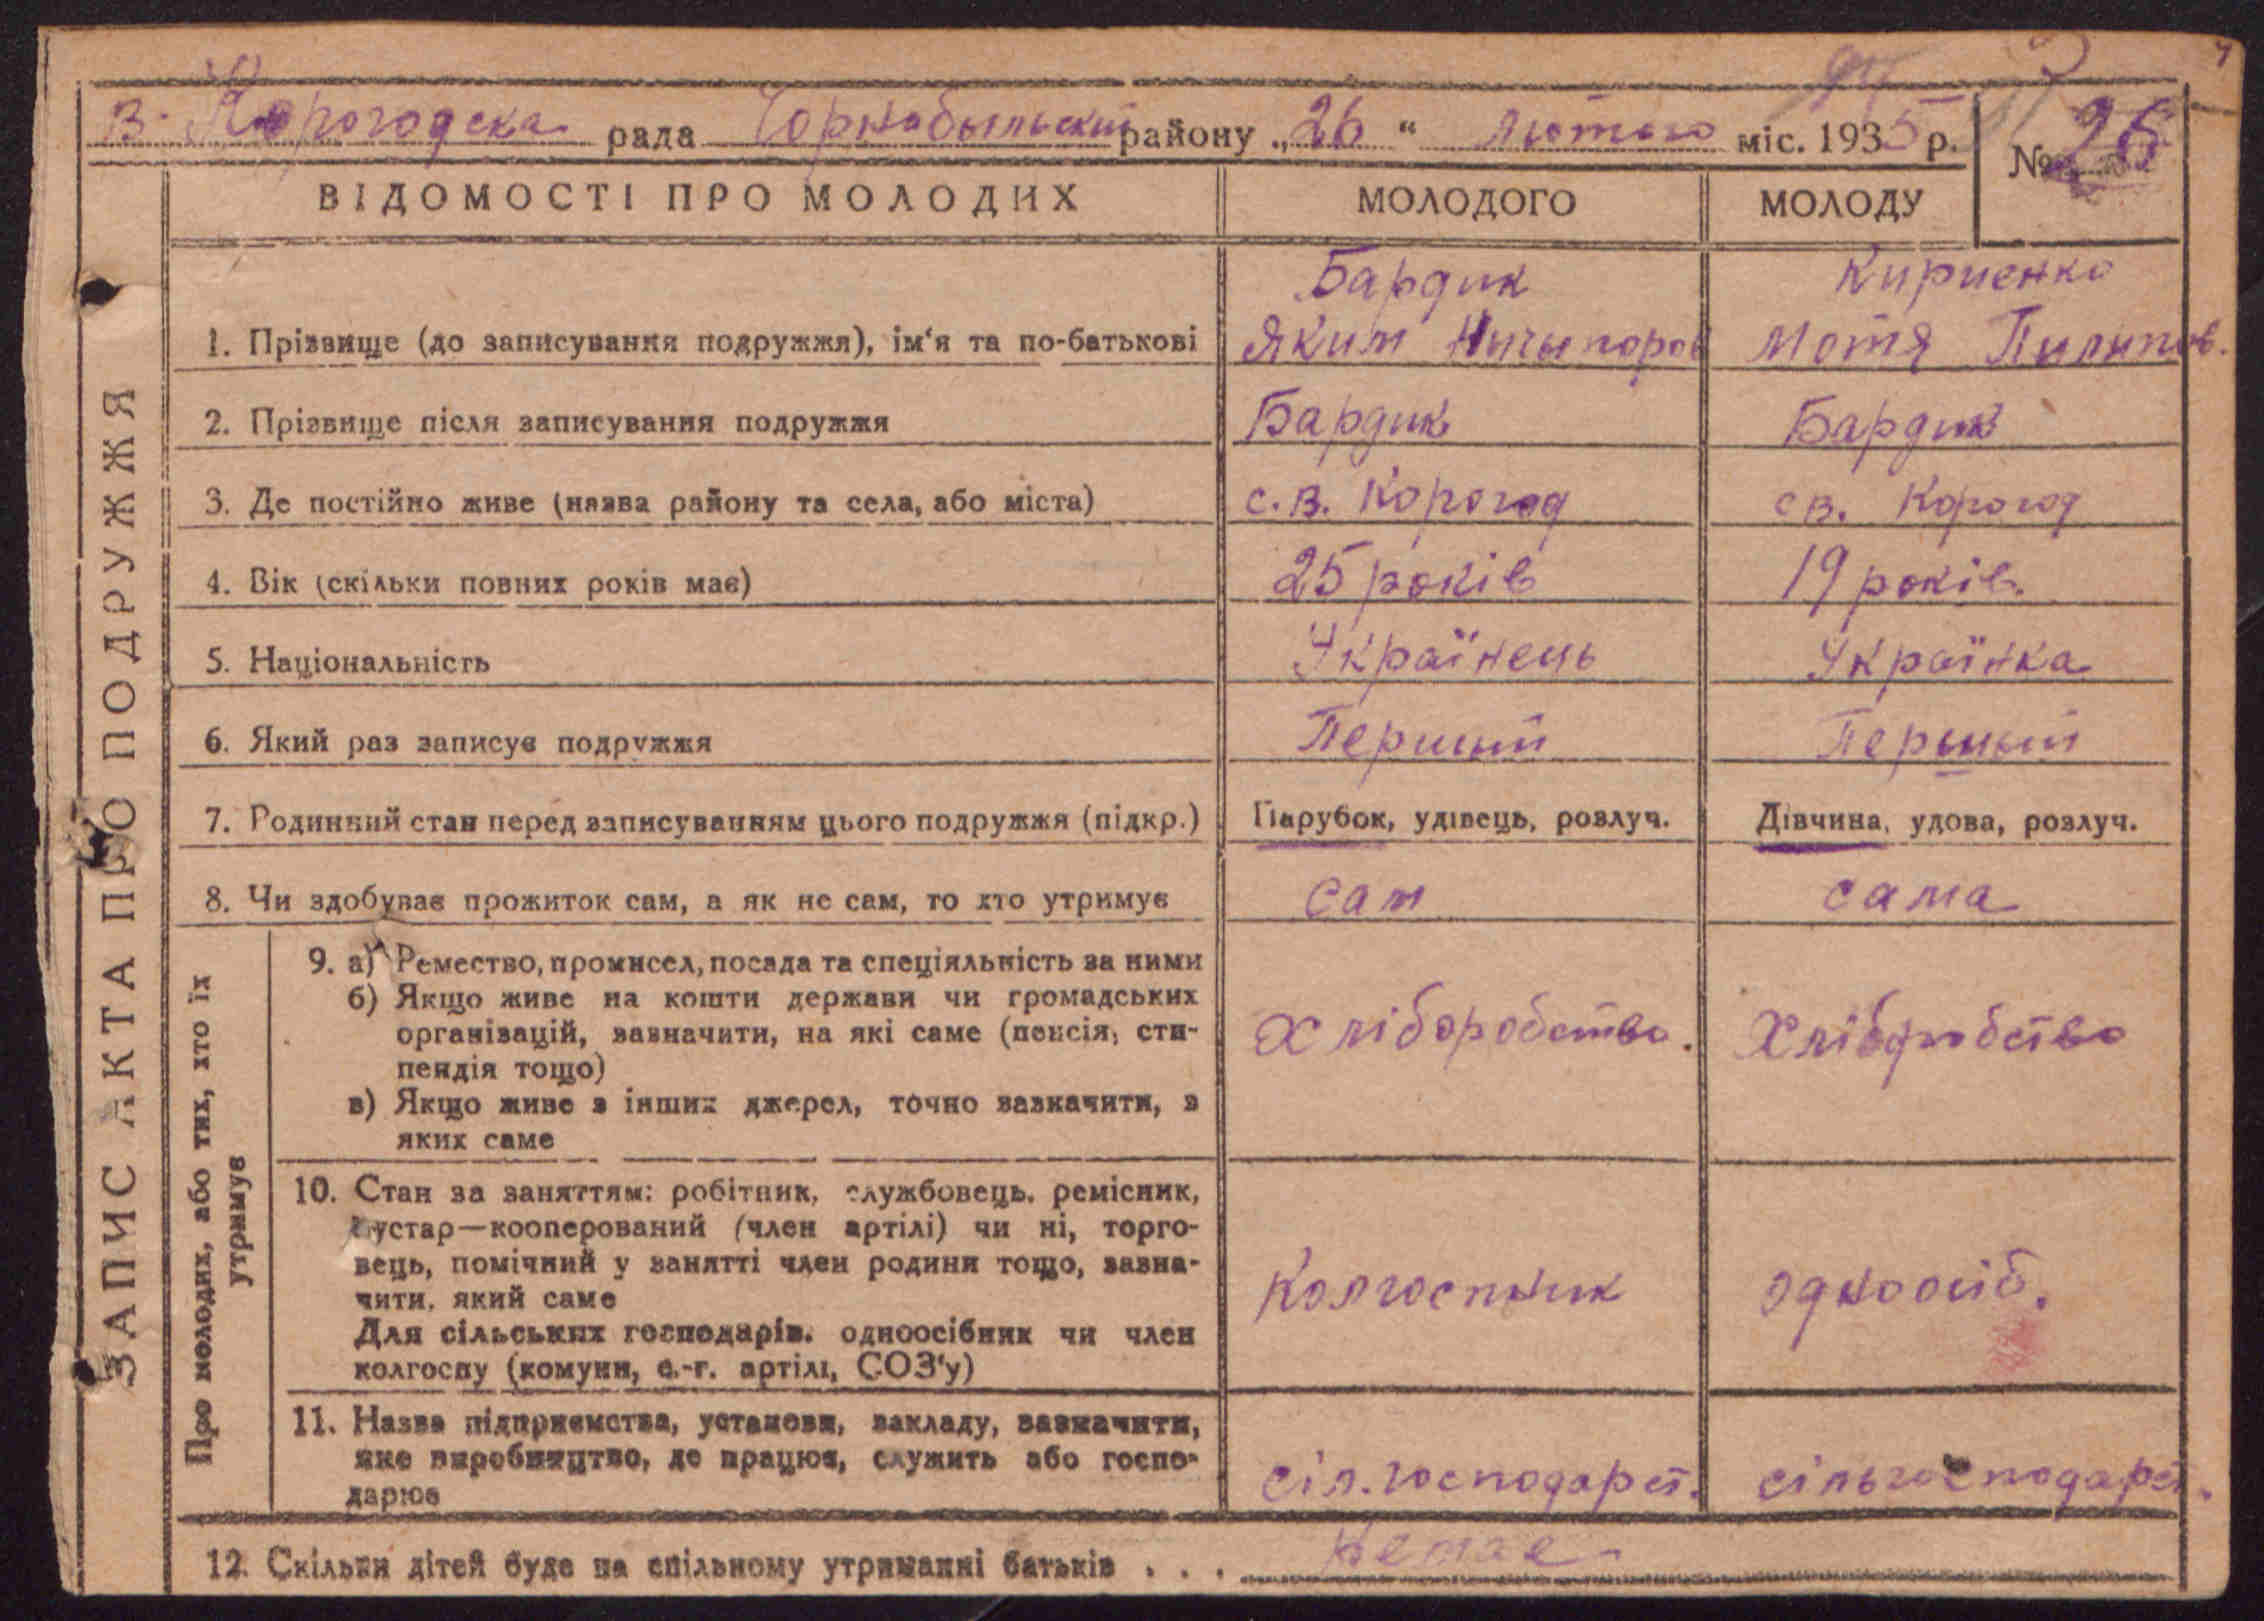 В. Корогодська рада Чорнобыльский району „26“ лютого міс. 1935 р.
№ 26
ВІДОМОСТІ ПРО МОЛОДИХ МОЛОДОГО МОЛОДУ
ЗАПИС АКТА ПРО ПОДРУЖЖЯ
Бардик Кириенко
1. Прізвище (до записування подружжя), ім'я та по-батькові Яким Ничыпоров Мотя Пилипов.
2. Прізвище після записування подружжя Бардик Бардик
3. Де постійно живе (назва району та села, або міста) с. В. Корогод с В. Корогод
4. Вік (скільки повних років має) 25 років 19 років.
5. Національність Українець Українка
6. Який раз записує подружжя Першый Першый
7. Родинний стан перед записуванням цього подружжя (підкр.) Парубок, удівець, розлуч. Дівчина, удова, розлуч.
8. Чи здобуває прожиток сам, а як не сам, то хто утримує сам сама
Про молодих, або тих, хто їх
утримує
9. а) Ремество, промисел, посада та спеціяльність за ними
б) Якщо живе на кошти держави чи громадських
організацій, зазначити, на які саме (пенсія, сти-
пендія тощо)
в) Якщо живе з інших джерел, точно зазначити, з
яких саме
Хліборобство. Хліборобство
10. Стан за заняттям: робітник, службовець, ремісник,
кустар—кооперований (член артілі) чи ні, торго-
вець, помічний у занятті член родини тощо, зазна-
чити, який саме
Для сільських господарів. одноосібник чи член
колгоспу (комуни, с.-г. артілі, СОЗ'у)
Колгоспник одноосіб.
11. Назва підприємства, установи, закладу, зазначити,
яке виробництво, де працює, служить або госпо-
дарює
сіл. господарст. сільгосподарст.
12. Скільки дітей буде на спільному утриманні батьків . . . Немае